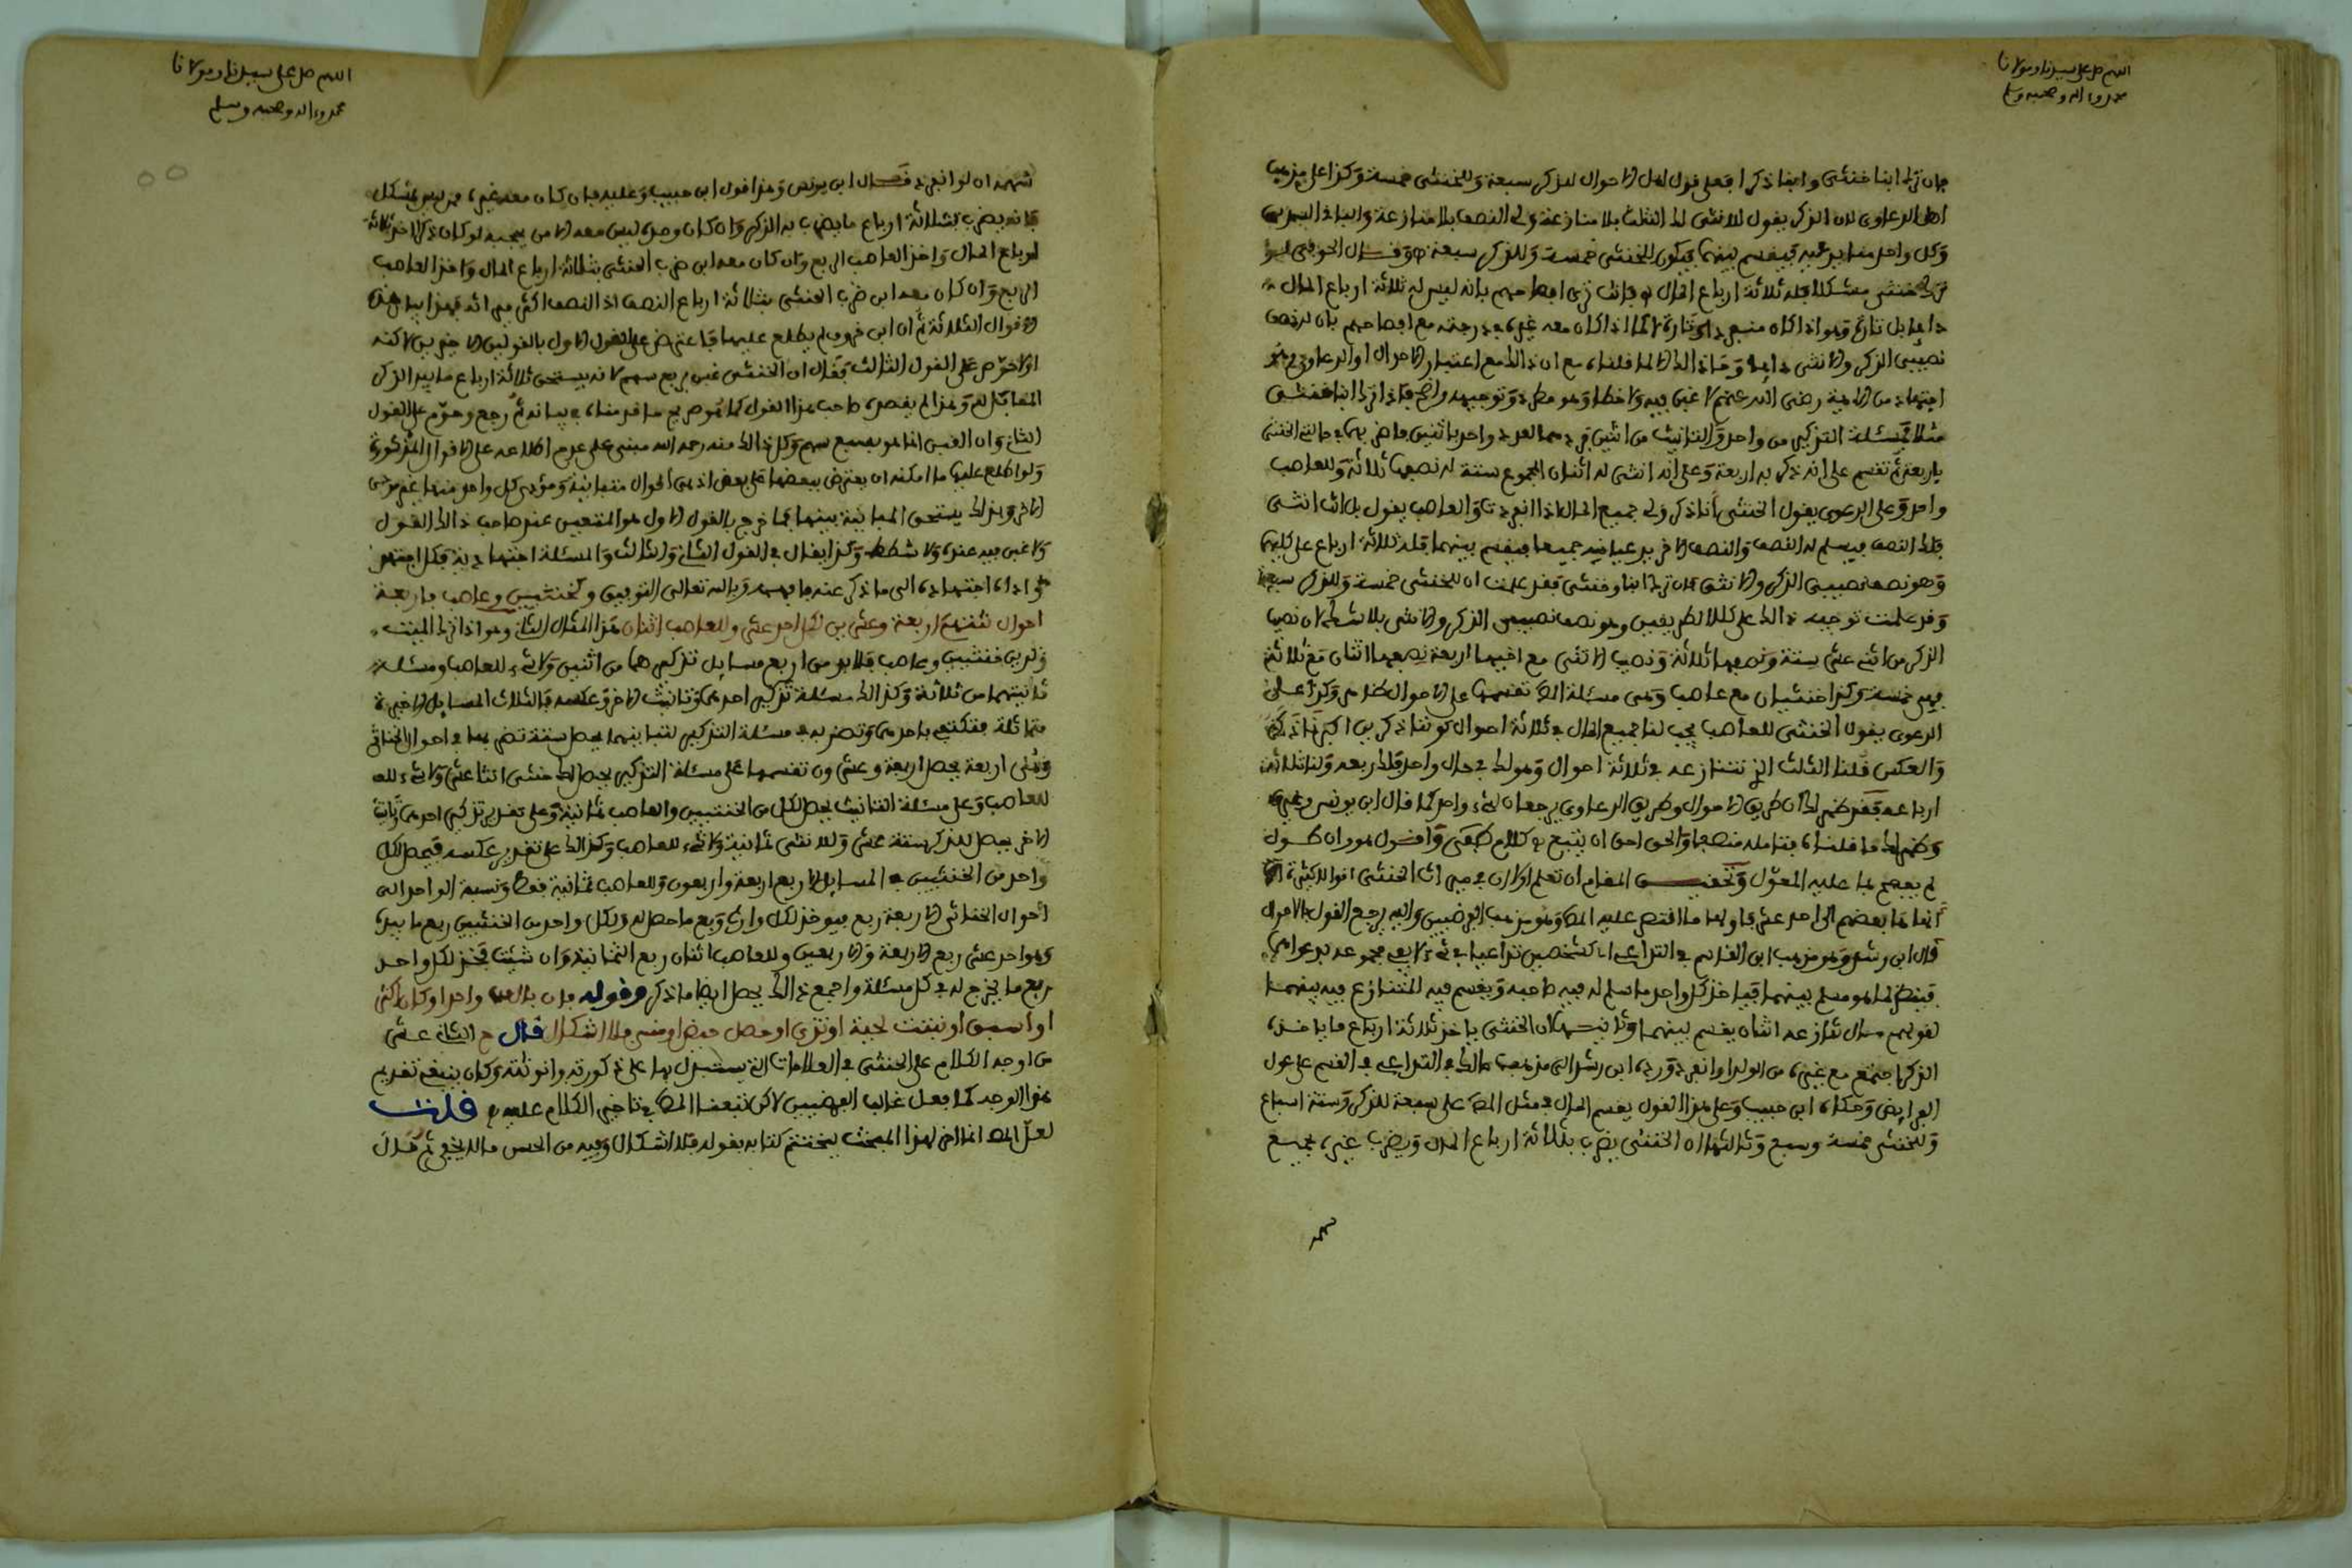 اللهم صل على سيدنا ومولانا
محمد وءاله وصحبه وسلم
فان ترك ابنا خنثى وابنا ذكرا فعلى قول اهل الاحوال للذكر سبعة وللخنثى خمسة وكذا على مذهب
اهل الدعاوى لان الذكر يقول للانثى لك الثلث بلا منازعة ولى النصف بلا منازعة والباقى السدس
وكل واحد منا يدعيه فيقسم بينهما فيكون للخنثى خمسة وللذكر سبعة
خنثى مشكلا فله ثلاثة ارباع المال فانت ترى بانه ليس له ثلاثة ارباع المال
دايما بل تارة وهو اذا كان منفردا وتارة اذا كان معه غيره فى درجته مع بان له نصف
نصيبى الذكر والانثى دايما وما ذالك الا لما قلناه مع ان ذالك مع اعتبار الاحوال او الدعاوى
اجتهاد من الايمة رضى الله عنهم لا غبن فيه ولا خطا وهو مطرد وتوجيهه واضح فاذا ترك ابنا خنثى
مثلا فمسئلة التذكير من واحد والتانيث من اثنين واحد باثنين فاضربها فى حالتى الخنثى
باربعة ثم تقسم على انه ذكر به اربعة وعلى انه انثى له اثنان المجموع ستة له نصفها ثلاثة وللعاصب
واحد وعلى الدعوى يقول الخنثى أنا ذكر ولى جميع المال اذا انفردت والعاصب يقول بل انت انثى
فلك النصف فيسلم له النصف والنصف الاخر يدعيانه جميعا فيقسم بينهما فله ثلاثة ارباع على كليهما
وهو نصف نصيبى الذكر والانثى فان ترك ابنا وخنثى فقد علمت ان للخنثى خمسة وللذكر سبعة
وقد علمت توجيه ذالك على كلا الطريقين وهو نصف نصيبى الذكر والانثى بلا شك لان نصيب
الذكر من اثنى عشر ستة ونصفها ثلاثة ونصيب الانثى مع اخيها اربعة نصفها اثنان مع ثلاثة
فهى خمسة وكذا خنثيان مع عاصب وهى مسئلة المص تقسيمها على الاحوال ظاهر وكذا على
الدعوى يقول الخنثى للعاصب يجب لنا جميع المال فى ثلاثة احوال كوننا ذكرين
والعكس فلنا الثلث الذى تنازعه فى ثلاثة احوال وهو لك فى حال واحد فلك ربعه ولنا ثلاثة
ارباعه فقد ظهر لك ان طريق الاحوال وطريق الدعاوى يرجعان لشىء واحد كما قال ابن يونس وغيره
وظهر لك ما قلناه فتامله منصفا والحق احق ان يتبع كلام طفى وأقول هو وان طول
لم يفصح بما عليه المعول وتحقيق المقام ان تعلم اولا ان فى ميراث الخنثى اقوالا كثيرة
انهاها بعضهم الى احد عشر قولا ما اقتصر عليه المص وهو مذهب الفرضيين واليه يرجع القول بالاحوال
قال ابن رشد وهو مذهب ابن القاسم فى التداعى كشخصين تداعيا فى شىء لا يفى مجموعه بدعواهما
فينظر لما هو مسلم بينهما فياخذ كل واحد ما سلم له فيه صاحبه ويقسم فيه المتنازع فيه بينهما
لقولهم مال تنازعه اثنان يقسم بينهما وثانيها ان الخنثى ياخذ ثلاثة ارباع ما ياخذه
الذكر اجتمع مع غيره من الولد او انفرد ورده ابن رشد الى مذهب مالك فى التداعى فى القسم على عول
الفرايض وحكاه ابن حبيب وعلى هذا القول يقسم المال فى مثل المص على سبعة للذكر وستة اسباع
وللخنثى خمسة وسبع وثالثها ان الخنثى يضرب بثلاثة ارباع المال ويضرب غيره بجميع
سهمه
اللهم صل على سيدنا ومولانا
محمد وءاله وصحبه وسلم
سهمه ان لو انفرد قال ابن يونس وهذا قول ابن حبيب وعليه فان كان معه غيره ممن ليس بمشكل
فانه يضرب بثلاثة ارباع ما يضرب به الذكر وان كان وحده ليس معه الا من يحجبه لو كان ذكرا اخذ ثلاثة
ارباع المال واخذ العاصب الربع وان كان معه ابن ضرب الخنثى بثلاثة ارباع المال واخذ العاصب
الربع وان كان معه ابن ضرب الخنثى بثلاثة ارباع النصف اذ النصف اكثر ميراثه فهذا بيان هذه
الاقوال الثلاثة ثم ان ابن خروف لم يطلع عليها فاعترض على القول الاول بالقولين الاخيرين لاكنه
اولا حوم على القول الثالث فقال ان الخنثى غبن بربع سهم لانه يستحق ثلاثة ارباع ما بيد الذكر
المقابل له وهذا لم يقصده صاحب هذا القول كما هو صريح ما قدمناه فى بيانه ثم رجع وحوم على القول
الثانى وان الغبن انما هو بسبع سهم وكل ذالك منه رحمه الله مبنى على عدم اطلاعه على الاقوال المذكورة
ولو اطلع عليها ما امكنه ان يعترض ببعضها على بعض اذ هى أقوال متباينة ومؤدى كل واحد منها غير مؤدى
الاخر وبذلك يستحق المباينة بينهما فما خرج بالقول الاول هو المتعين عند صاحب ذالك القول
ولا غبن فيه عنده ولا شطط وكذا يقال فى القول الثانى والثالث والمسئلة اجتهادية فكل اجتهد
واداه اجتهاده الى ما ذكر عنه فافهمه وبالله تعالى التوفيق وكخنثيين وعاصب فاربعة
احوال تنتهى لاربعة وعشرين لكل احد عشر وللعاصب اثنان هذا المثال الثانى وهو اذا ترك الميت
ولدين خنثيين وعاصب فلابد من اربع مسايل تذكيرهما من اثنين ولا شىء للعاصب ومسئلة
تانيثهما من ثلاثة وكذالك مسئلة تذكير احدهما وتانيث الاخر وعكسه فالثلاث المسايل الاخيرة
متماثلة فتكتفى باحدهما وتضربه فى مسئلة التذكير لتباينهما يحصل ستة تضربها فى احوال الخناثى
وهى اربعة يحصل اربعة وعشرون تقسمها على مسئلة التذكير يحصل لكل خنثى اثنا عشر ولا شىء
للعاصب وعلى مسئلة التانيث يحصل لكل من الخنثيين والعاصب ثمانية وعلى تقدير تذكير احدهما وتانيث
الاخر يحصل للذكر ستة عشر وللانثى ثمانية ولا شىء للعاصب وكذالك على تقدير عكسه فيحصل لكل
واحد من الخنثيين فى المسايل الاربع اربعة واربعون وللعاصب ثمانية فقط ونسبة الواحد الى
أحوال الخناثى الاربعة ربع فيوخذ لكل وارث ربع ما حصل له ولكل واحد من الخنثيين ربع ما بيده
وهو احد عشر ربع الاربعة والاربعين وللعاصب اثنان ربع الثمانية وان شئت فخذ لكل واحد
ربع ما يخرج له فى كل مسئلة واجمع ذالك يحصل ايضا ما ذكر وقوله فان بال من واحد او كان اكثر
او اسبق او نبتت لحية او ثدى او حصل حيض او منى فلا اشكال قال ح الثانى عشر
من اوجه الكلام على الخنثى فى العلامات التى يستدل بها على ذكورته وانوثته وكان ينبغى تقديم
هذا الوجه كما فعل غالب الفرضيين لاكن تبعنا المص فى تاخير الكلام عليه قلت
لعل المص انما اخر هذا المبحث ليختتم كتابه بقوله فلا اشكال وفيه من الحسن ما لا يخفى ثم قال